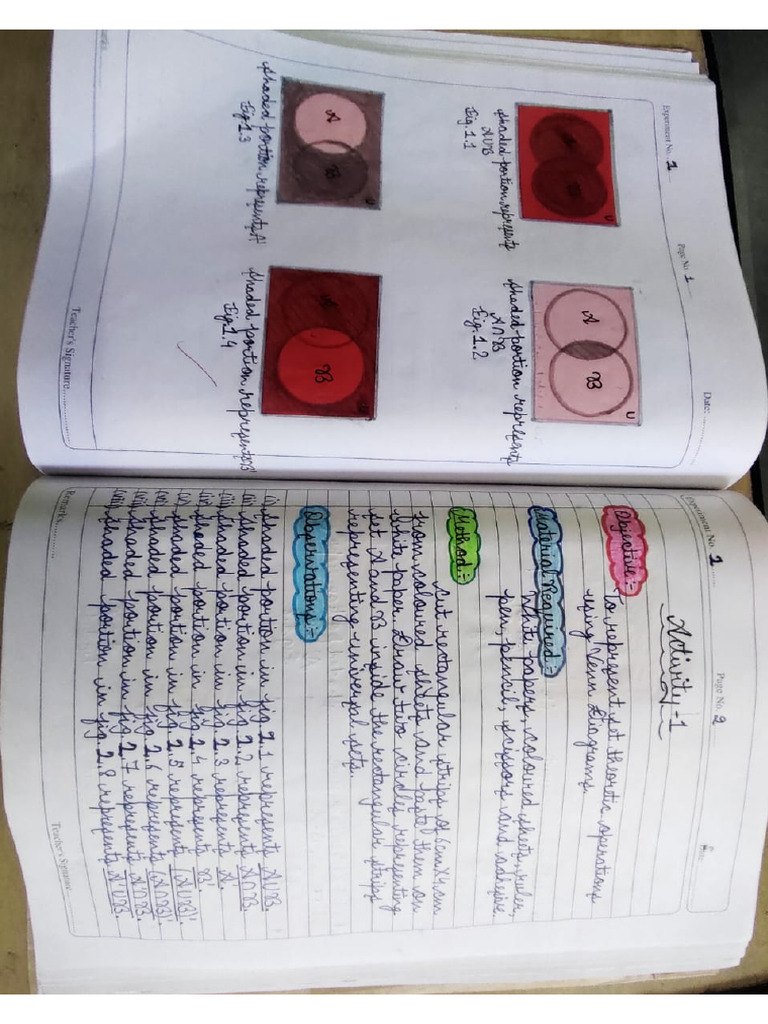 Experiment No. 1
Page No. 1
Date:
A
B
U
Shaded portion represents
A∪B
Fig. 1.1
A
B
U
Shaded portion represents
A∩B
Fig. 1.2
A
B
U
Shaded portion represents A'
Fig 1.3
A
B
U
Shaded portion represents B'
Fig 1.4
Teacher's Signature
Experiment No. 1
Page No. 2
Activity-1
Objective:-
To represent set theoretic operations
using Venn Diagrams
Material Required:-
White papers, coloured sheets, ruler,
pen, pencil, scissors and adhesive.
Method:-
Cut rectangular strips of 6cm×4cm
from coloured sheets and paste them on
white paper. Draw two circles representing
set A and B inside the rectangular strips
representing universal sets.
Observations:-
i) Shaded portion in fig 2.1 represents A∪B.
ii) Shaded portion in fig 2.2 represents A∩B.
iii) Shaded portion in fig 2.3 represents A'.
iv) Shaded portion in fig 2.4 represents B'
v) Shaded portion in fig 2.5 represents (A∪B)'.
vi) Shaded portion in fig 2.6 represents (A∩B)'.
vii) Shaded portion in fig 2.7 represents A'∩B.
viii) Shaded portion in fig 2.8 represents A'∪B.
Remarks
Teacher's Signature